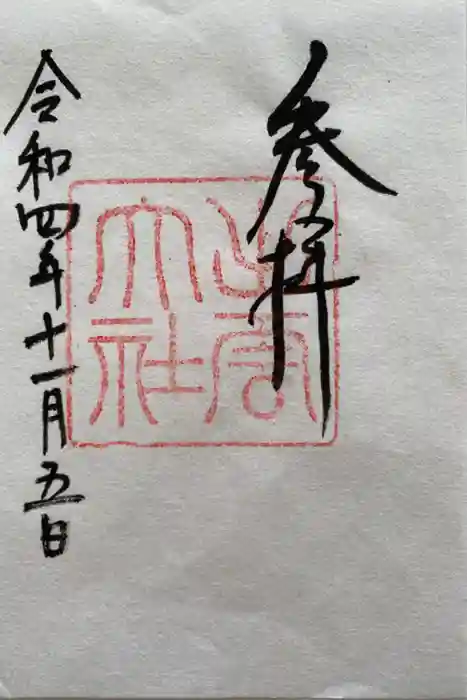 参拝
宮
大社
令和四年十一月五日